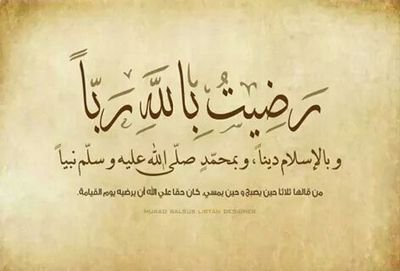 رَضِيتُ بِاللَّهِ رَبّاً
وبالإسلام ديناً، وبمحمّدٍ صلّى الله عليه وسلّم نبياً
من قالها ثلاثا حين يصبح وحين يمسي، كان حقا علي الله أن يرضيه يوم القيامة.
DESIGNER